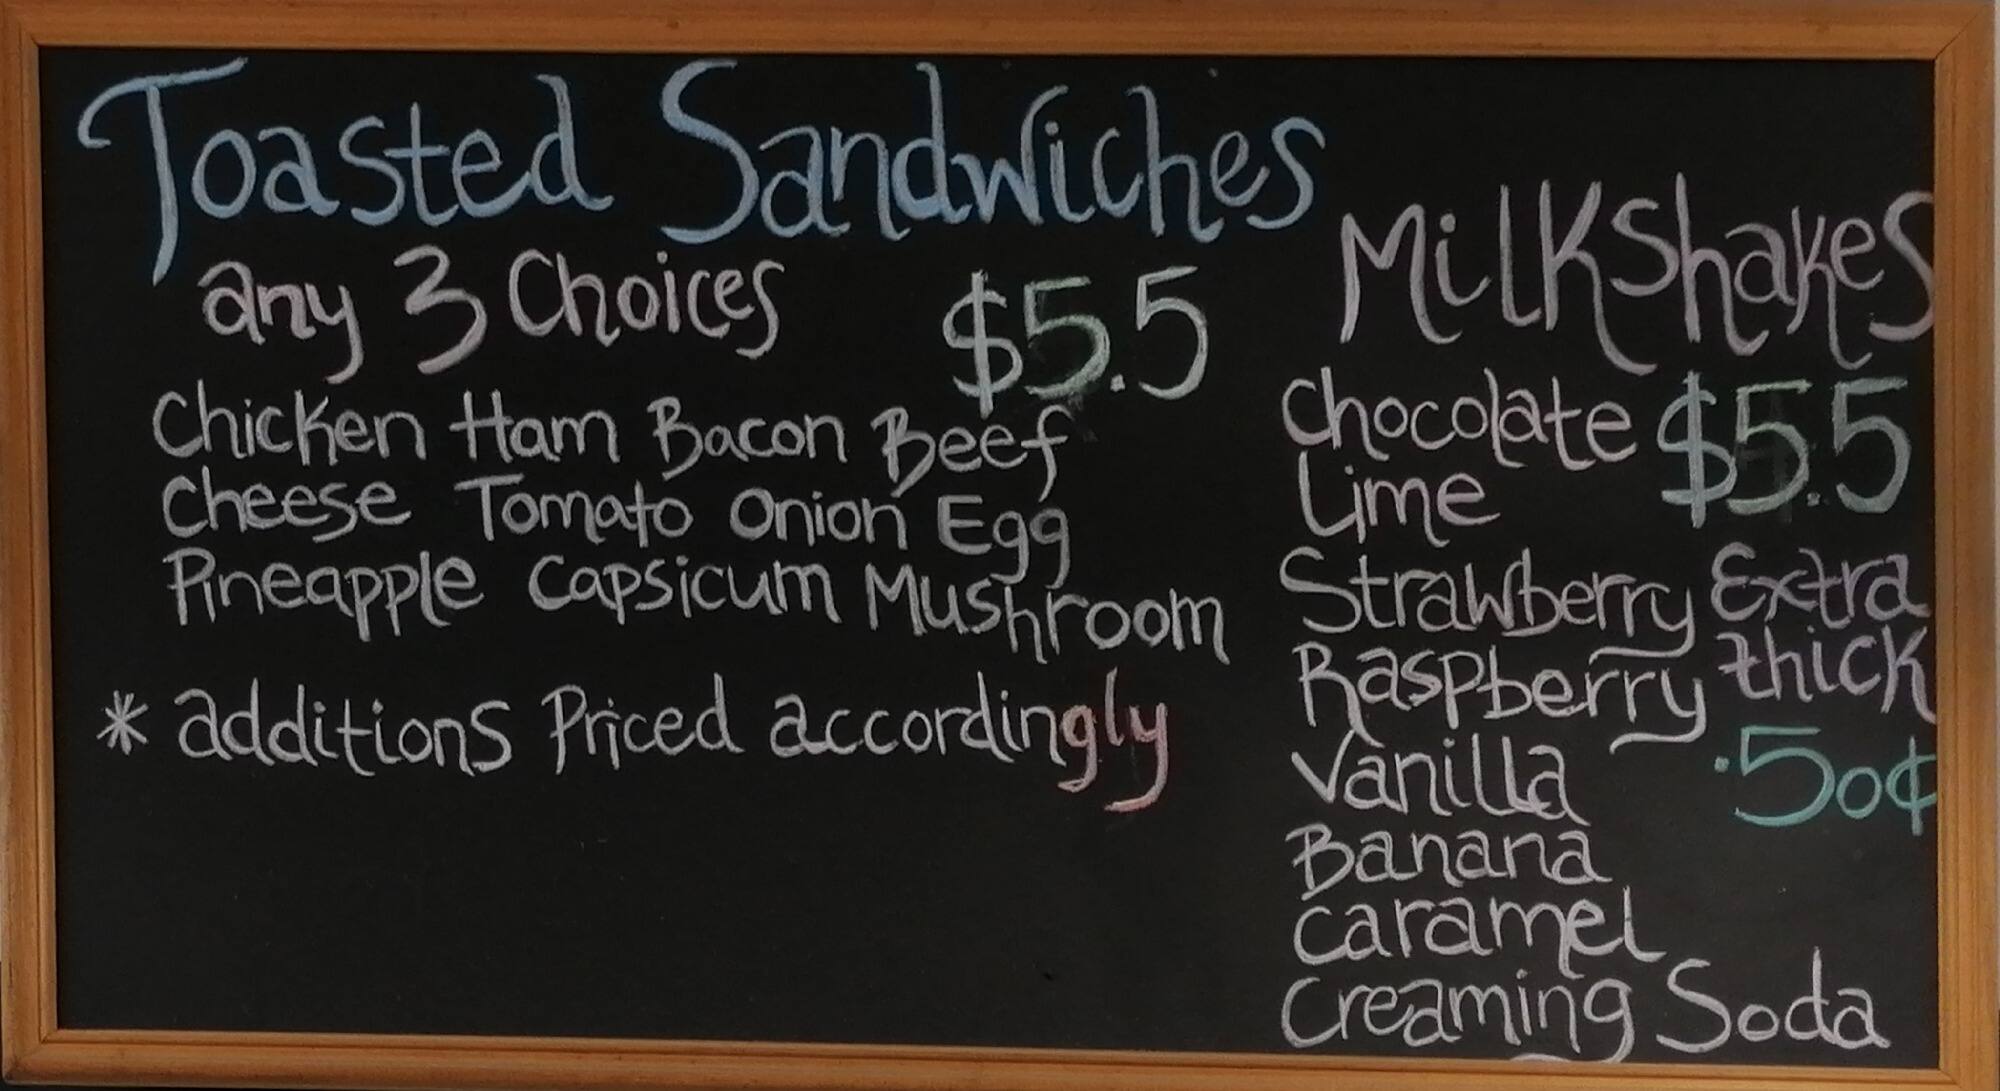 Toasted Sandwiches
any 3 Choices $5.5
Chicken Ham Bacon Beef
Cheese Tomato Onion Egg
Pineapple Capsicum Mushroom
* additions Priced accordingly
Milkshakes
Chocolate $5.5
Lime
Strawberry Extra
Raspberry thick
Vanilla .50¢
Banana
Caramel
Creaming Soda